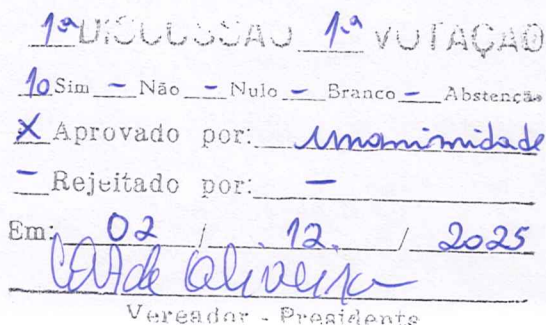 1ª DISCUSSÃO 1.ª VOTAÇÃO
10 Sim - Não - Nulo - Branco - Abstenção
X Aprovado por: unanimidade
- Rejeitado por: -
Em: 02 / 12. / 2025
de Oliveira
Vereador - Presidente